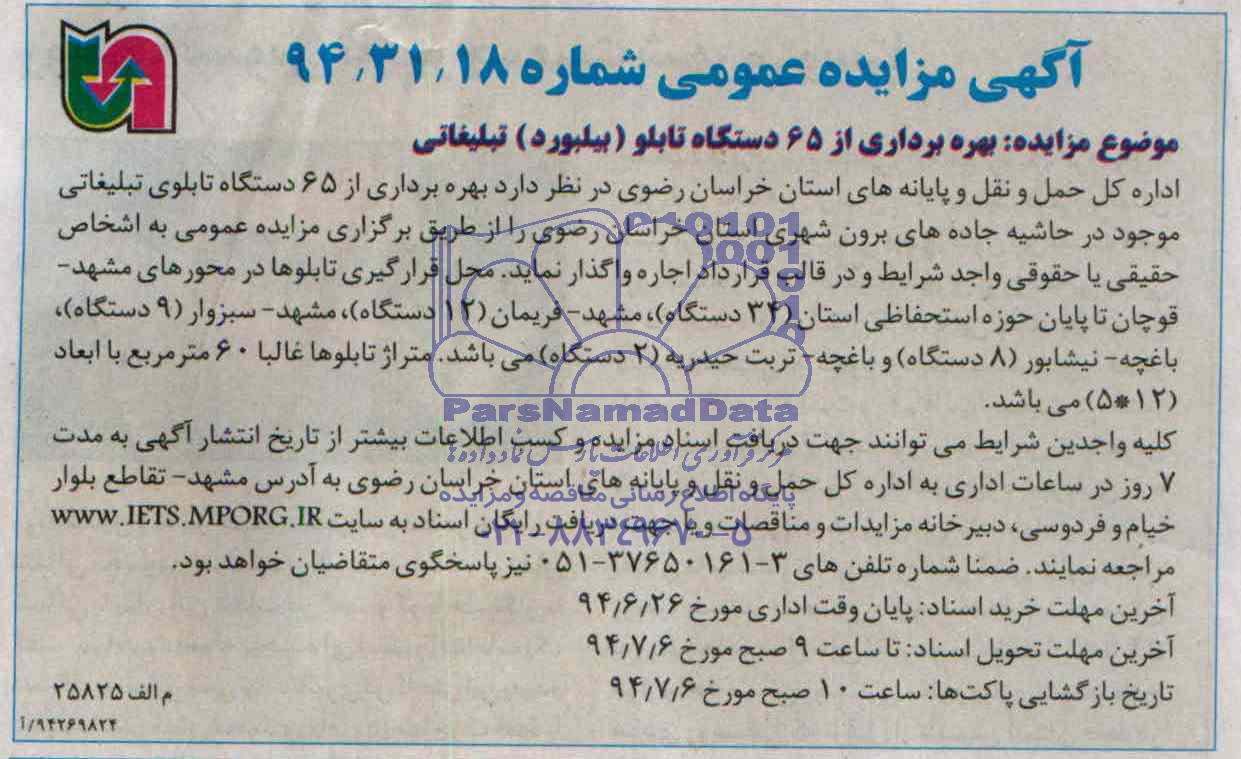 آگهی مزایده عمومی شماره ۹۴٫۳۱٫۱۸
موضوع مزایده: بهره برداری از ۶۵ دستگاه تابلو (بیلبورد) تبلیغاتی
اداره کل حمل و نقل و پایانه های استان خراسان رضوی در نظر دارد بهره برداری از ۶۵ دستگاه تابلوی تبلیغاتی
موجود در حاشیه جاده های برون شهری استان خراسان رضوی را از طریق برگزاری مزایده عمومی به اشخاص
حقیقی یا حقوقی واجد شرایط و در قالب قرارداد اجاره واگذار نماید. محل قرارگیری تابلوها در محورهای مشهد-
قوچان تا پایان حوزه استحفاظی استان (۳۴ دستگاه)، مشهد- فریمان (۱۲ دستگاه)، مشهد- سبزوار (۹ دستگاه)،
باغچه- نیشابور (۸ دستگاه) و باغچه- تربت حیدریه (۲ دستگاه) می باشد. متراژ تابلوها غالبا ۶۰ مترمربع با ابعاد
(۱۲*۵) می باشد.
کلیه واجدین شرایط می توانند جهت دریافت اسناد مزایده و کسب اطلاعات بیشتر از تاریخ انتشار آگهی به مدت
۷ روز در ساعات اداری به اداره کل حمل و نقل و پایانه های استان خراسان رضوی به آدرس مشهد- تقاطع بلوار
خیام و فردوسی، دبیرخانه مزایدات و مناقصات و یا جهت دریافت رایگان اسناد به سایت WWW.IETS.MPORG.IR
مراجعه نمایند. ضمنا شماره تلفن های ۳-۳۷۶۵۰۱۶۱-۰۵۱ نیز پاسخگوی متقاضیان خواهد بود.
آخرین مهلت خرید اسناد: پایان وقت اداری مورخ ۹۴٫۶٫۲۶
آخرین مهلت تحویل اسناد: تا ساعت ۹ صبح مورخ ۹۴٫۷٫۶
تاریخ بازگشایی پاکت‌ها: ساعت ۱۰ صبح مورخ ۹۴٫۷٫۶
م الف ۲۵۸۲۵
۹۴۲۶۹۸۲۴/آ
ParsNamadData
مرکز فرآوری اطلاعات پارس نماد داده‌ها
پایگاه اطلاع رسانی مناقصه و مزایده
۰۲۱-۸۸۳۴۹۶۷۰-۵